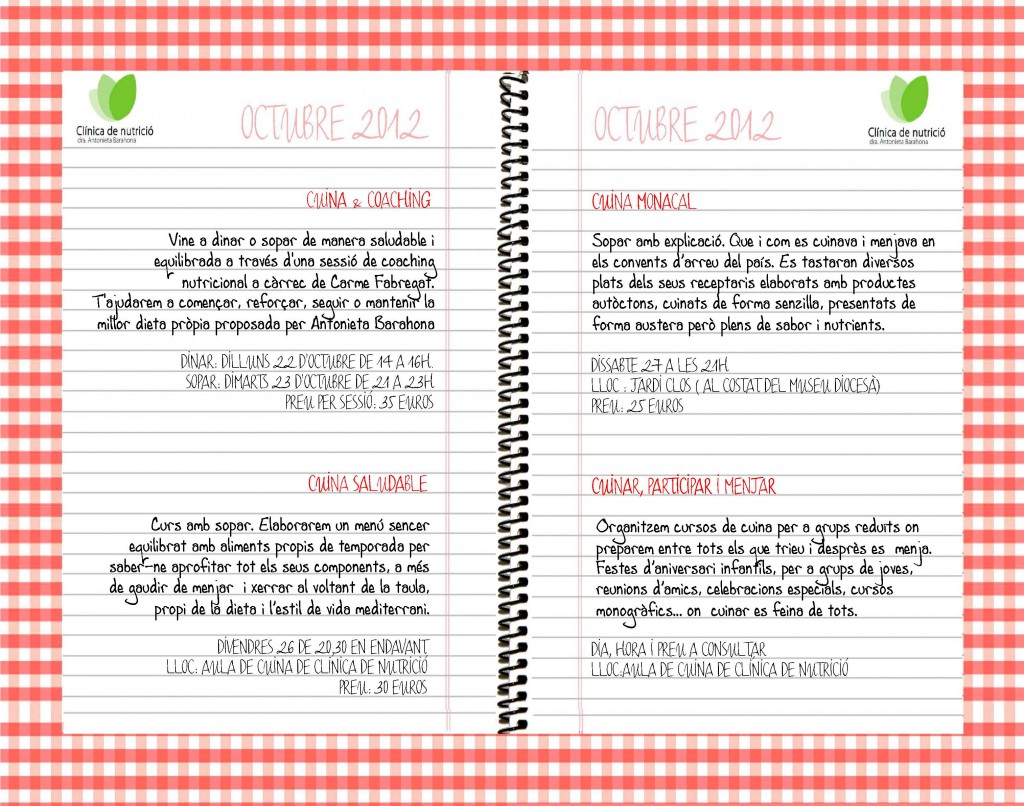 Clínica de nutrició
dra. Antonieta Barahona
OCTUBRE 2012
CUINA & COACHING
Vine a dinar o sopar de manera saludable i
equilibrada a través d'una sessió de coaching
nutricional a càrrec de Carme Fabregat.
T'ajudarem a començar, reforçar, seguir o mantenir la
millor dieta pròpia proposada per Antonieta Barahona
DINAR: DILLUNS 22 D'OCTUBRE DE 14 A 16H.
SOPAR: DIMARTS 23 D'OCTUBRE DE 21 A 23H
PREU PER SESSIÓ: 35 EUROS
CUINA SALUDABLE
Curs amb sopar. Elaborarem un menú sencer
equilibrat amb aliments propis de temporada per
saber-ne aprofitar tot els seus components, a més
de gaudir de menjar i xerrar al voltant de la taula,
propi de la dieta i l'estil de vida mediterrani.
DIVENDRES 26 DE 20,30 EN ENDAVANT
LLOC: AULA DE CUINA DE CLÍNICA DE NUTRICIÓ
PREU: 30 EUROS
OCTUBRE 2012
Clínica de nutrició
dra. Antonieta Barahona
CUINA MONACAL
Sopar amb explicació. Que i com es cuinava i menjava en
els convents d'arreu del país. Es tastaran diversos
plats dels seus receptaris elaborats amb productes
autòctons, cuinats de forma senzilla, presentats de
forma austera però plens de sabor i nutrients.
DISSABTE 27 A LES 21H
LLOC : JARDÍ CLOS ( AL COSTAT DEL MUSEU DIOCESÀ)
PREU: 25 EUROS
CUINAR, PARTICIPAR I MENJAR
Organitzem cursos de cuina per a grups reduïts on
preparem entre tots els que trieu i desprès es menja.
Festes d'aniversari infantils, per a grups de joves,
reunions d'amics, celebracions especials, cursos
monogràfics... on cuinar es feina de tots.
DÍA, HORA I PREU A CONSULTAR
LLOC:AULA DE CUINA DE CLÍNICA DE NUTRICIÓ